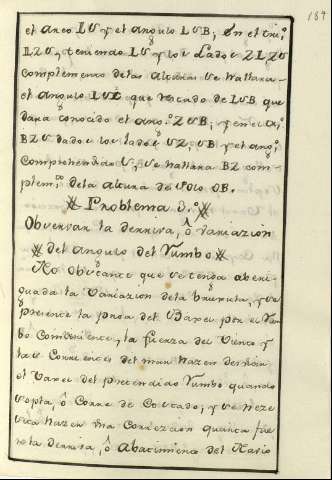 159
el arco LS, y el angulo LSB; En el tri.º
LZS, teniendo LS y los Lados ZL, ZS
complementos delas alturas se hallara
el angulo LSZ que restado de LSB que
dara conocido el ang.º ZSB; y en el tri.º
BZS dados los lados SZ, SB y el ang.º
Comprehendido S, se hallara BZ com
plem.to dela altura de Polo OB.
Problema 3.º
Observar la derrita, ô variazion
del angulo del Rumbo
No obstante que se tenga aberi-
guada la Variazion dela bruxula, y se
presente la proa del Baxel por el Rum
bo Combeniente, la fuerza del Viento y
las Corrientes del mar hazen desbiar
el Baxel del pretendido Rumbo quando
sopla, ô Corre de Costado; y se neze
sita hazer una Correzion quanta fue
re la derrita, ô abatimiento del Navio